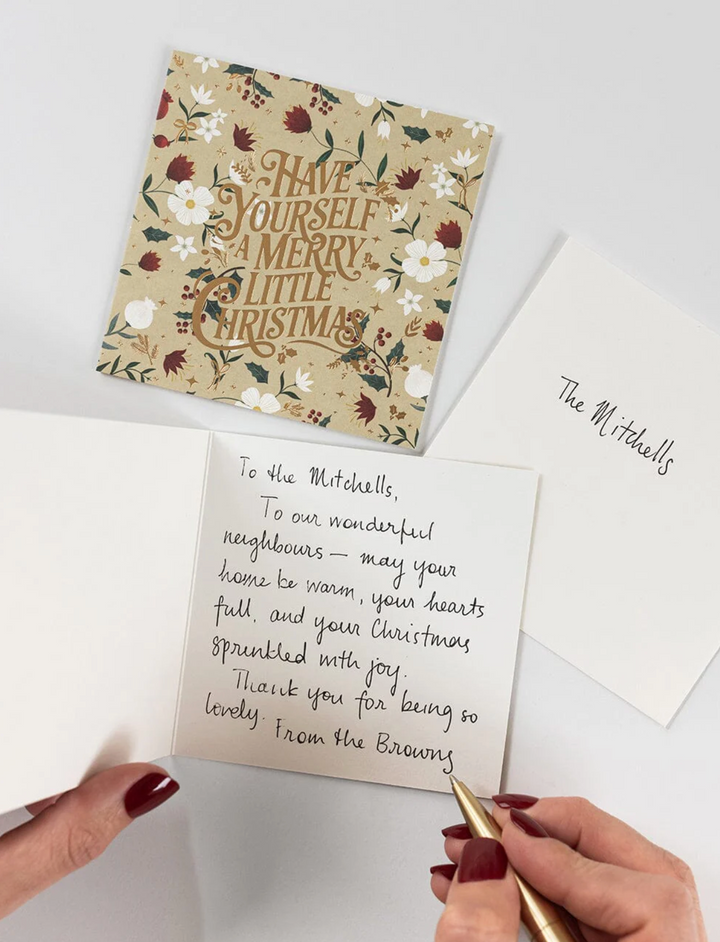 HAVE
YOURSELF
A MERRY
LITTLE
CHRISTMAS
The Mitchells
To the Mitchells,
To our wonderful
neighbours — may your
home be warm, your hearts
full, and your Christmas
sprinkled with joy.
Thank you for being so
lovely. From the Browns